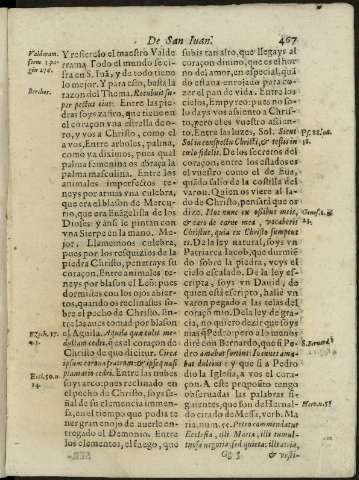 De San Iuan.
467
Y refierelo el maestro Valde
rrama. Todo el mundo se ci-
fra en S. Iuã, y de todo tiene
lo mejor. Y para esto, basta la
razon del Thema.
per pectus eius. Entre las pie-
dras soys çafiro, que tienen en
el coraçon vna estrella de o-
ro, y vos a Christo, como el
a vos. Entre arboles, palma,
como ya diximos, pues qual
palma femenina os abraça la
palma masculina. Entre los
animales imperfectos te-
neys por armas vna culebra,
que era el blason de Mercu-
rio, que era Euãgelista de los
Dioses: y ansi se pintan con
vna Sierpe en la mano. Me-
jor. Llamemoos culebra,
pues por los resquizios de la
piedra Christo, penetrays su
coraçon. Entre animales te-
neys por blason el Leõ: pues
dormistes con los ojos abier-
tos, quando os reclinastes so-
bre el pecho de Christo. En-
tre las aues tomad por blason
el Aguila. Aquila que tulit me-
dullam cedri, que es el coraçon de
Christo de quo dicitur. Circa
Entre las nubes
soys arco: pues reclinado en
el pecho de Christo, soys se-
ñal de su clemencia immen-
sa, en el tiempo que podia te-
ner gran enojo de auerle en-
tregado el Demonio. Entre
los elementos, el fuego, que
subis tan alto, que llegays al
coraçon diuino, que es el hor-
no del amor, en especial, quã
do estaua endragado para co-
zer el pan de vida. Entre los
cielos, Empyreo: pues no so-
lo days vos asiento a Christo
ro, pero el es vuestro asien-
to. Entre las luces, Sol. Sicut
Sol in conspectu Christi, & testis in
cælo fidelis. De los secretos del
coraçon, entre los estados es
el vuestro como el de Eua,
quando salio de la costilla del
varon. Quien os viere al la-
do de Christo, pensarà que os
dizen. Hoc nunc os ossibus meis,
& caro de carne mea, vocaberis
Christus, quia ex Christo sumptus
es. De la ley natural, soys vn
Patriarca Iacob, que durmiẽ
do sobre la piedra, veys el
cielo escalado. De la ley es-
cripta, soys vn Dauid, de
quien està escripto, hallè vn
varon pegado a las telas del
coraçõ mio. De la ley de gra-
cia, no quiero dezir que soys
mas q̃ Pedro: pero a lo menos
dirè con Bernardo, que si Pe-
dro amabat fortius: Ioannes ama-
bat dulcius: y que si a Pedro
dio la Iglesia, a vos el cora-
çon. A este proposito tengo
obseruadas las palabras si-
guientes, que son de Hernal-
do citado de Messa, verb. Ma
ria, num. ce. Petro commendatur
Ecclesia, illi Maria, illi tumul-
tuosa negotia: sed quieta: illi atria,
Gg 3
& vesti-